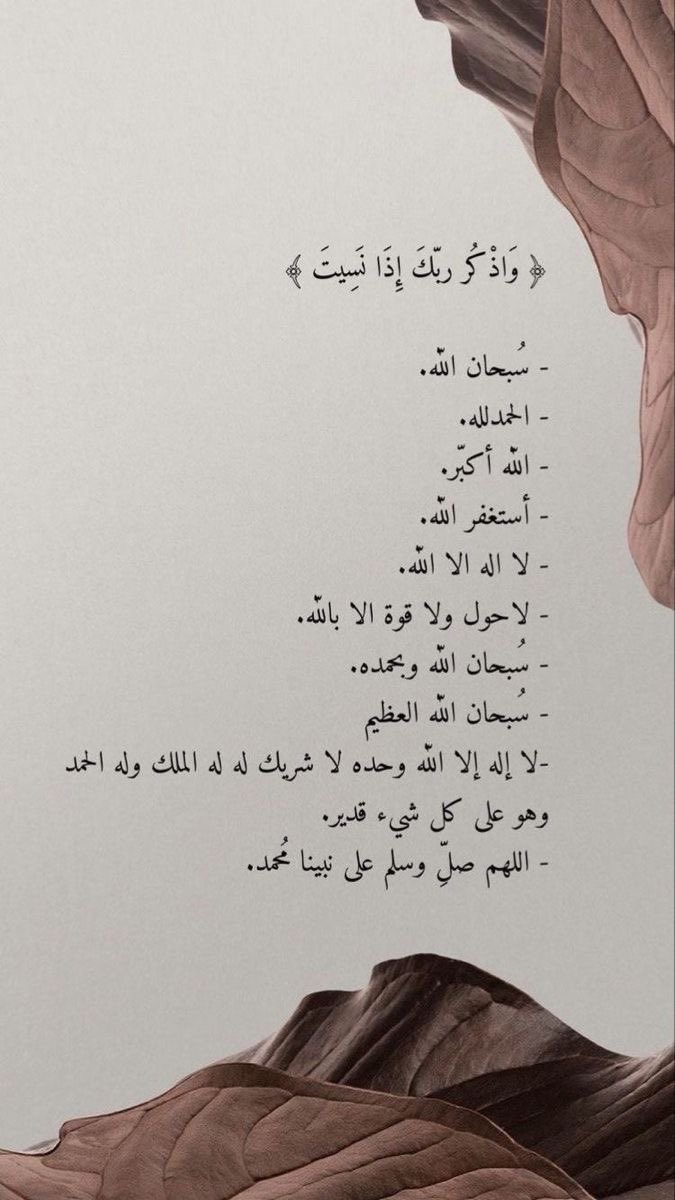 ﴿ وَاذْكُر ربّكَ إِذَا نَسِيتَ ﴾
- سُبحان الله.
- الحمدلله.
- الله أكبّر.
- أستغفر الله.
- لا اله الا الله.
- لاحول ولا قوة الا بالله.
- سُبحان الله وبحمده.
- سُبحان الله العظيم
-لا إله إلا الله وحده لا شريك له له الملك وله الحمد
وهو على كل شيء قدير.
- اللهم صلِّ وسلم على نبينا مُحمد.